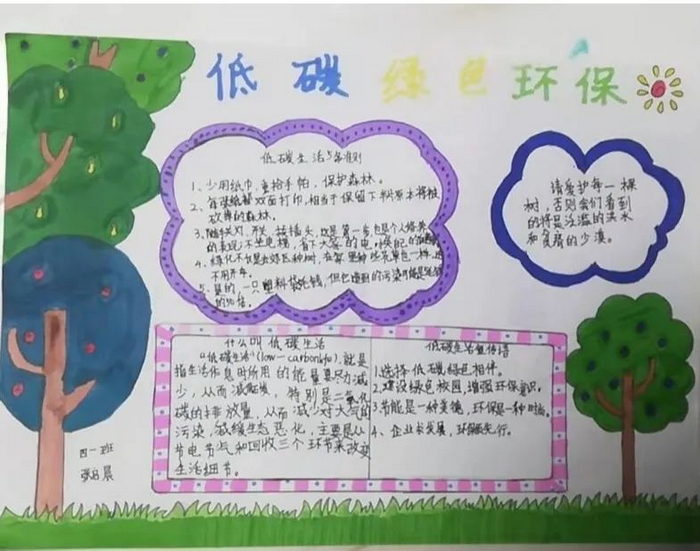 低碳绿色环保
低碳生活与准则
1、少用纸巾,重拾手帕,保护森林。
2、每张纸都双面打印,相当于保留下半片原本将被
放弃的森林。
3、随手关灯、开关、拔插头,这是第一步,也是个人修养
的表现;不坐电梯,省下大家的电,
4、绿化不仅是去郊区种树,在家里种些花草也一样,还
不用开车。
5、一只塑料袋
请爱护每一棵
树,否则我们看到
的将是泛滥的洪水
和贫瘠的沙漠。
什么叫低碳生活
"低碳生活"(low-carbonlife),就是
指生活作息时所用的能量要尽力减
少,从而减低碳,特别是二氧化
碳的排放量,从而减少对大气的
污染,减缓生态恶化,主要是从
节电节气和回收三个环节来改变
生活细节。
低碳生活宣传语
1、选择低碳绿色相伴。
2、建设绿色校园,增强环保意识。
3、节能是一种美德,环保是一种时尚。
4、企业求发展,环保须先行。
四一班